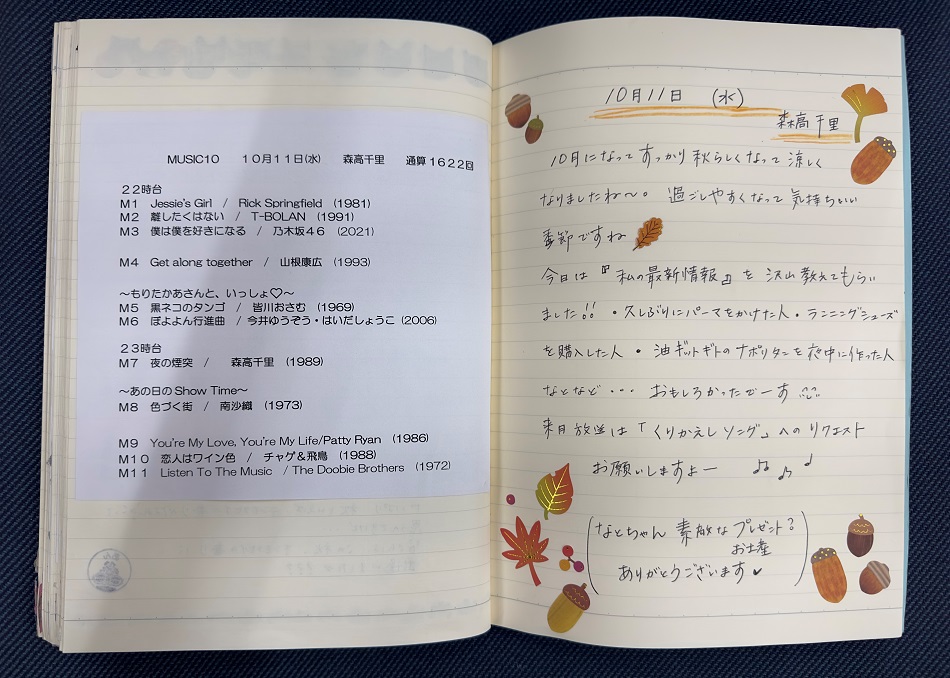 MUSIC10 10月11日(水) 森高千里 通算1622回
22時台
M1 Jessie's Girl / Rick Springfield (1981)
M2 離したくはない / T-BOLAN (1991)
M3 僕は僕を好きになる / 乃木坂46 (2021)
M4 Get along together / 山根康広 (1993)
～もりたかあさんと、いっしょ♡～
M5 黒ネコのタンゴ / 皆川おさむ (1969)
M6 ぼよよん行進曲 / 今井ゆうぞう・はいだしょうこ (2006)
23時台
M7 夜の煙突 / 森高千里 (1989)
～あの日のShow Time～
M8 色づく街 / 南沙織 (1973)
M9 You're My Love, You're My Life/Patty Ryan (1986)
M10 恋人はワイン色 / チャゲ&飛鳥 (1988)
M11 Listen To The Music / The Doobie Brothers (1972)
10月11日 (水)
森高千里
10月になってすっかり秋らしくなって涼しく
なりましたね〜。過ごしやすくなって気持ちいい
季節ですね
今日は『私の最新情報』を沢山教えてもらい
ました!! ・久しぶりにパーマをかけた人・ランニングシューズ
を購入した人・油ギットギトのナポリタンを夜中に作った人
などなど・・・ おもしろかったでーす
来月放送は「くりかえしソング」へのリクエスト
お願いしますよー
(なとちゃん 素敵なプレゼント?
お土産
ありがとうございます)